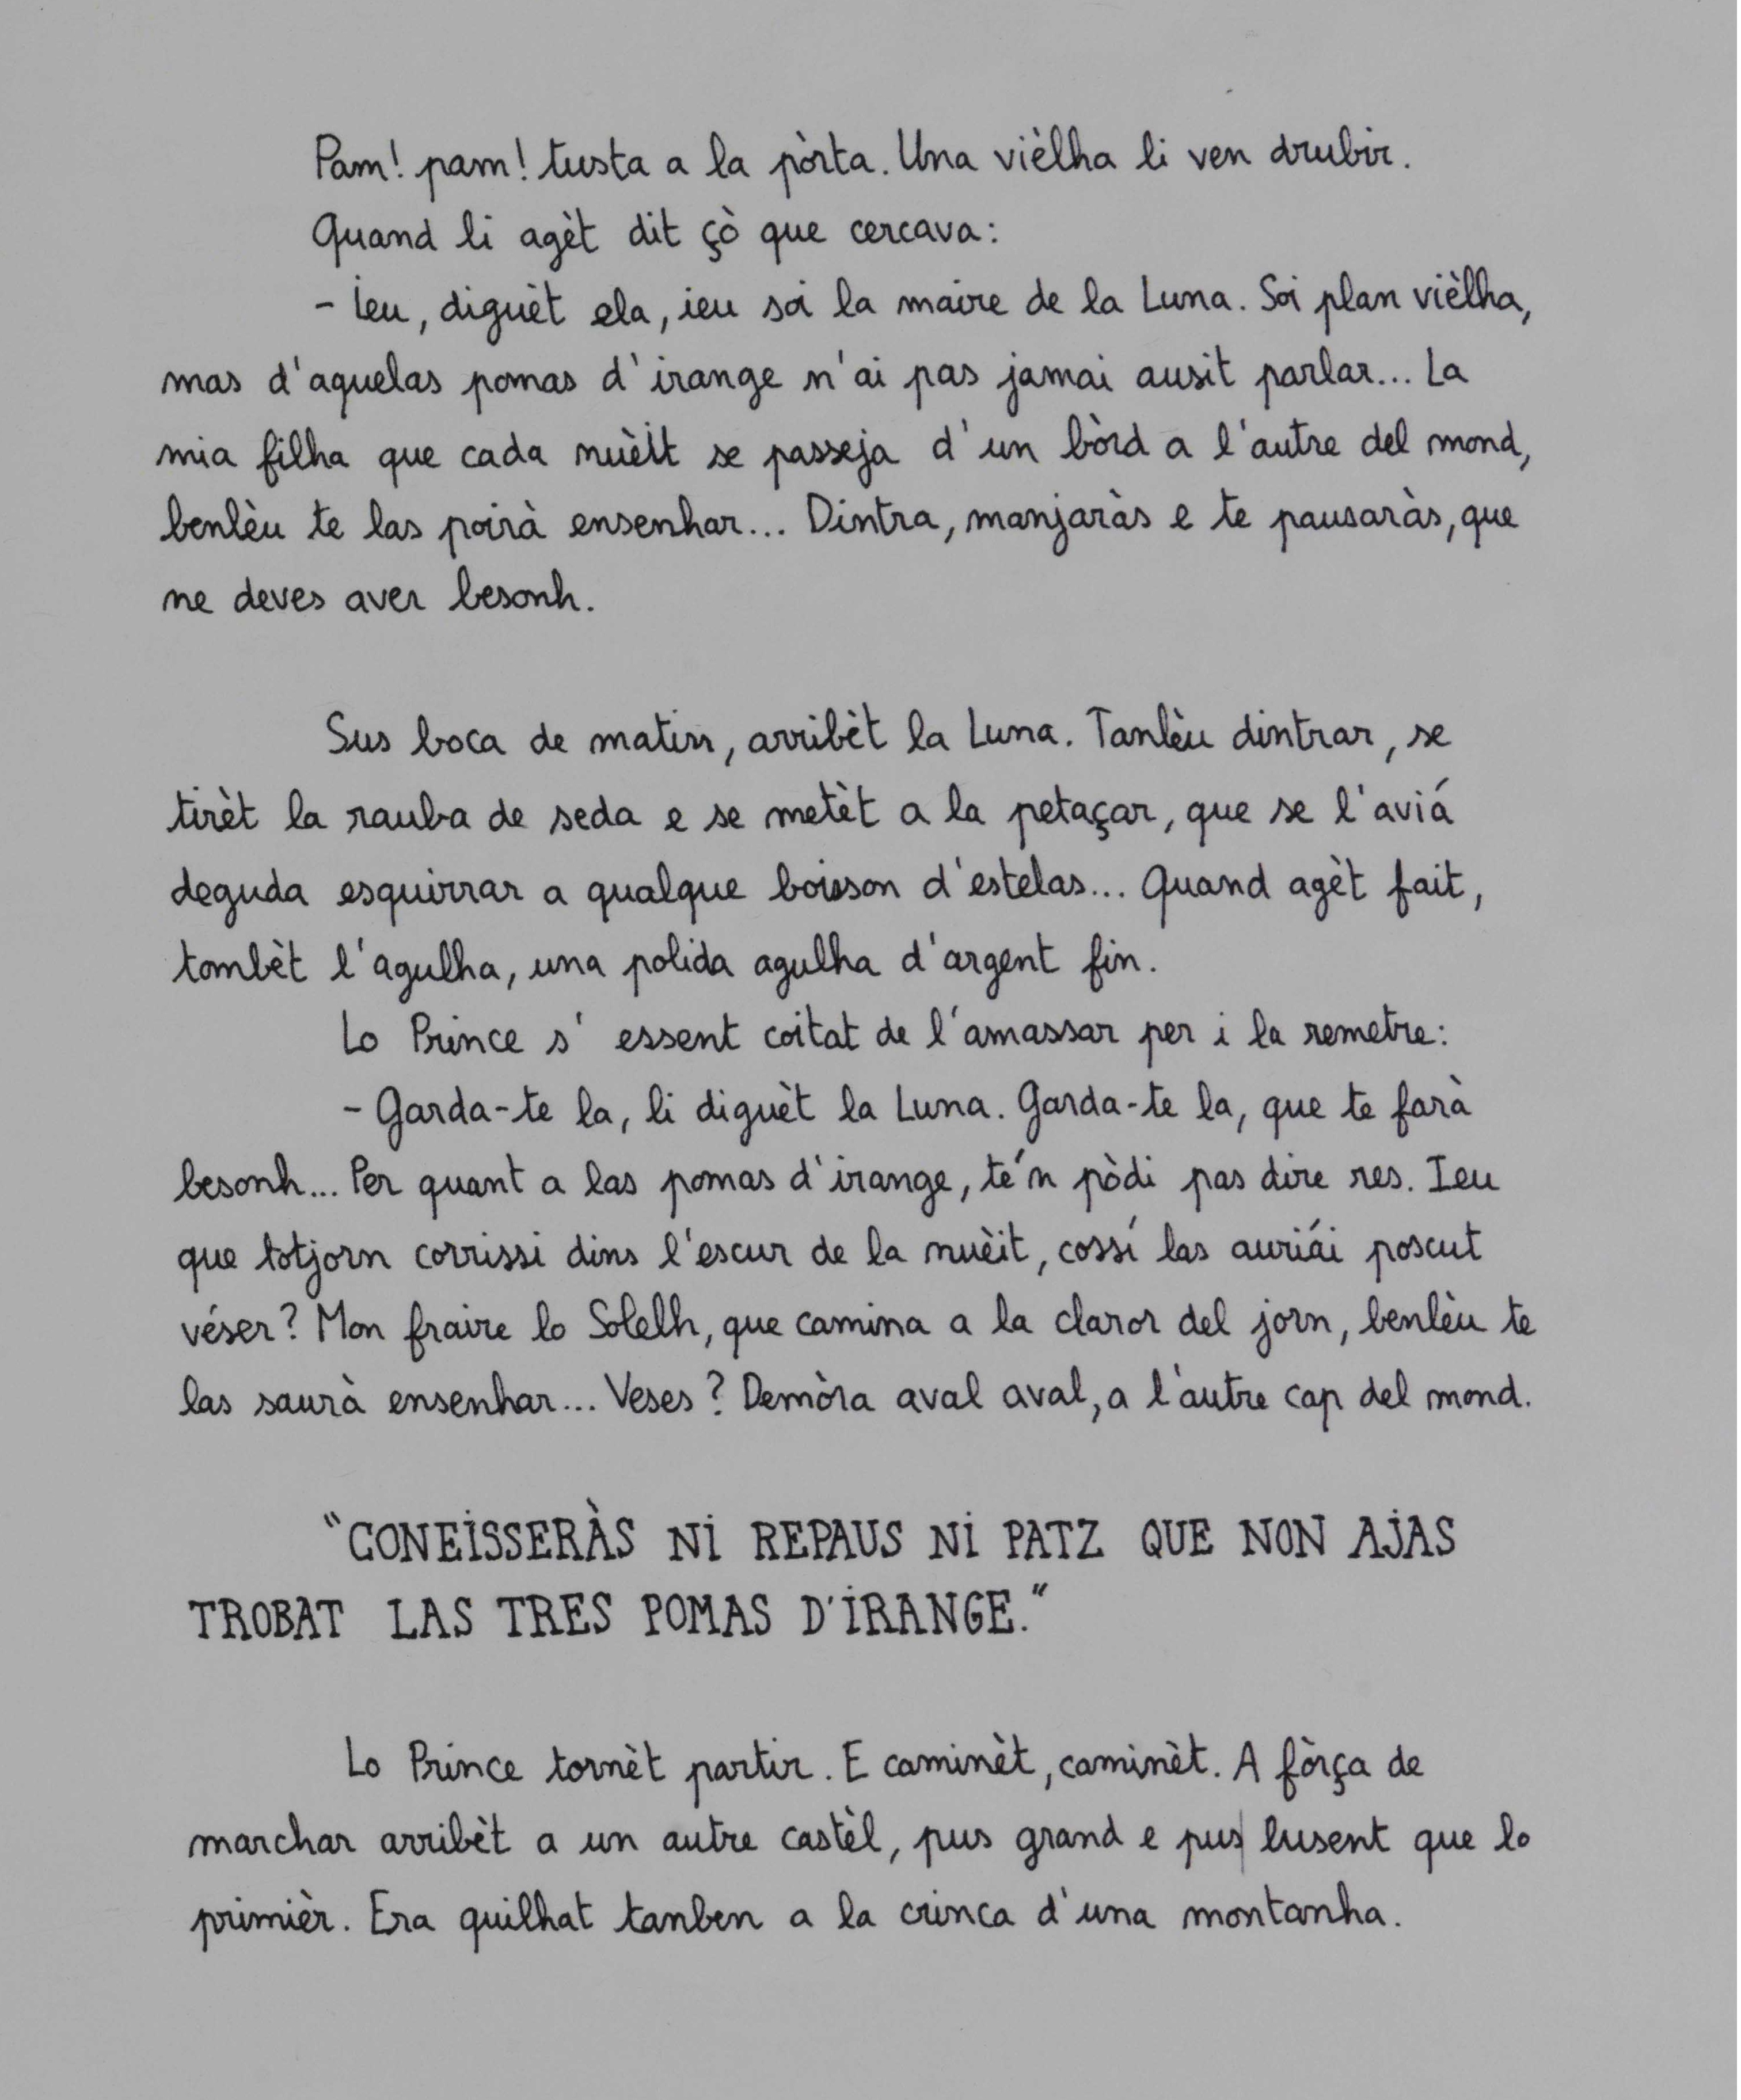 Pam! pam! tusta a la pòrta. Una vièlha li ven drubir.
Quand li agèt dit çò que cercava:
- Ieu, diguèt ela, ieu soi la maire de la Luna. Soi plan vièlha,
mas d'aquelas pomas d'irange n'ai pas jamai ausit parlar... La
mia filha que cada nuèit se passeja d'un bòrd a l'autre del mond,
benlèu te las poirà ensenhar... Dintra, manjaràs e te pausaràs, que
ne deves aver besonh.
Sus boca de matin, arribèt la Luna. Tanlèu dintrar, se
tirèt la rauba de seda e se metèt a la petaçar, que se l'aviá
deguda esquirrar a qualque boisson d'estelas... Quand agèt fait,
tombèt l'agulha, una polida agulha d'argent fin.
Lo Prince s' essent coitat de l'amassar per i la remetre:
- Garda-te la, li diguèt la Luna. Garda-te la, que te farà
besonh... Per quant a las pomas d'irange, te'n pòdi pas dire res. Ieu
que totjorn corrissi dins l'escur de la nuèit, cossí las auriái poscut
véser? Mon fraire lo Solelh, que camina a la claror del jorn, benlèu te
las saurà ensenhar... Veses? Demòra aval aval, a l'autre cap del mond.
"CONEISSERÀS NI REPAUS NI PATZ QUE NON AJAS
TROBAT LAS TRES POMAS D'IRANGE."
Lo Prince tornèt partir. E caminèt, caminèt. A fòrça de
marchar arribèt a un autre castèl, pus grand e pus lusent que lo
primièr. Era quilhat tanben a la crinca d'una montanha.